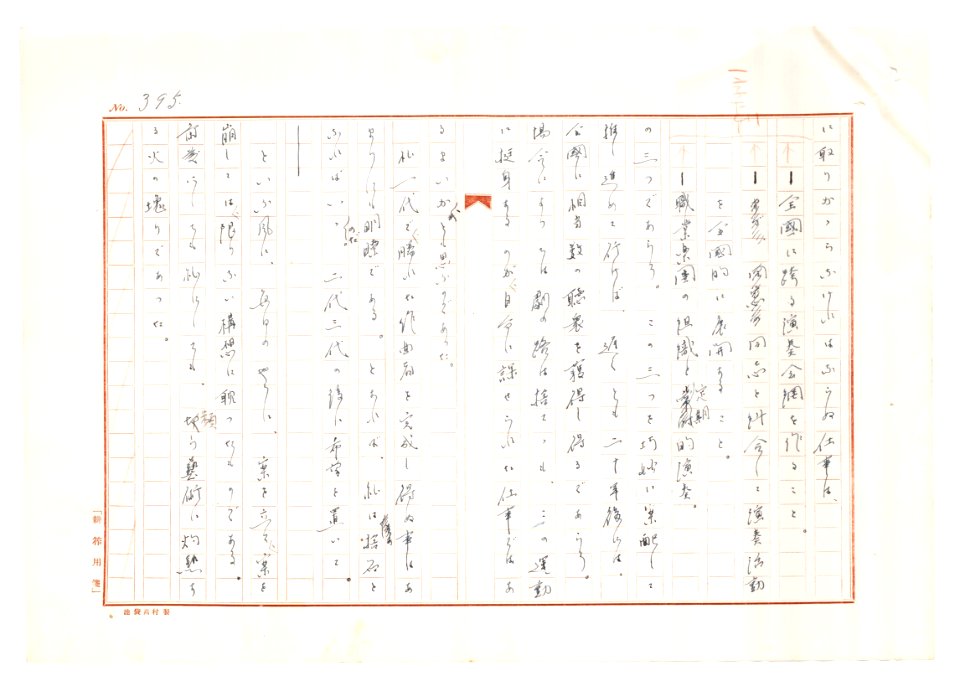 No. 395.
に取りかゝらなければならぬ仕事は、
┃全國に跨る演奏会網を作ること。
┃同志を糾合して演奏活動
を全國的に展開すること。
┃職業楽団の組織と定期的演奏。
の三つであらう。この三つを巧妙に案配して
推し進めて行けば、遅くとも二十年後には、
全國に相当数の聴衆を獲得し得るであらう。
場合によつては劇の路は捨てゝも、この運動
に挺身するのが自分に課せられた仕事ではあ
るまいかとも思ふのであつた。
私一代で勝れた作曲劇を完成し得ぬ事はあ
まりにも明瞭である。とすれば、私は捨石と
なればいゝのだ。二代三代の後に希望を置いて。
といふ風に、毎日のやうに、案を立て案を
崩しては、限りない構想に耽つたものである。
にしても私にしても、類ひ藝術に灼熱す
る火の塊りであつた。
「耕筰用箋」